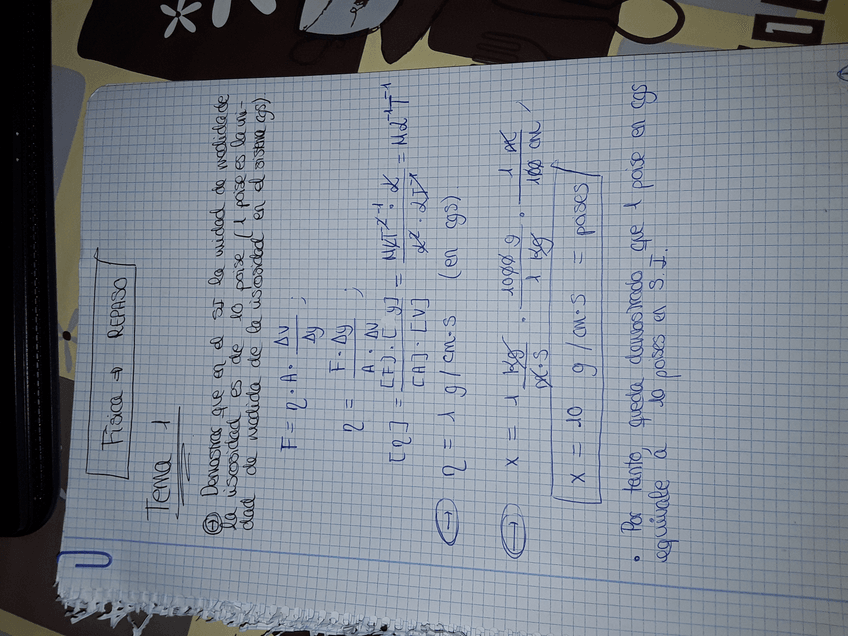 Física → REPASO
Tema 1
→ Demostrar que en el SI la unidad de medida de
la viscosidad es de 10 poise (1 poise es la uni-
dad de medida de la viscosidad en el sistema cgs)
F = η · A · Δv/Δy ;
η = F · Δy / A · Δv ;
[η] = [F] · [y] / [A] · [v] = MLT⁻² · L / L² · LT⁻¹ = ML⁻¹T⁻¹
→ η = 1 g/cm·s (en cgs)
→ x = 1 kg/m·s · 1000 g / 1 kg · 1 m / 100 cm ;
x = 10 g/cm·s = poises
• Por tanto, queda demostrado que 1 poise en cgs
equivale a 10 poses en S.I.